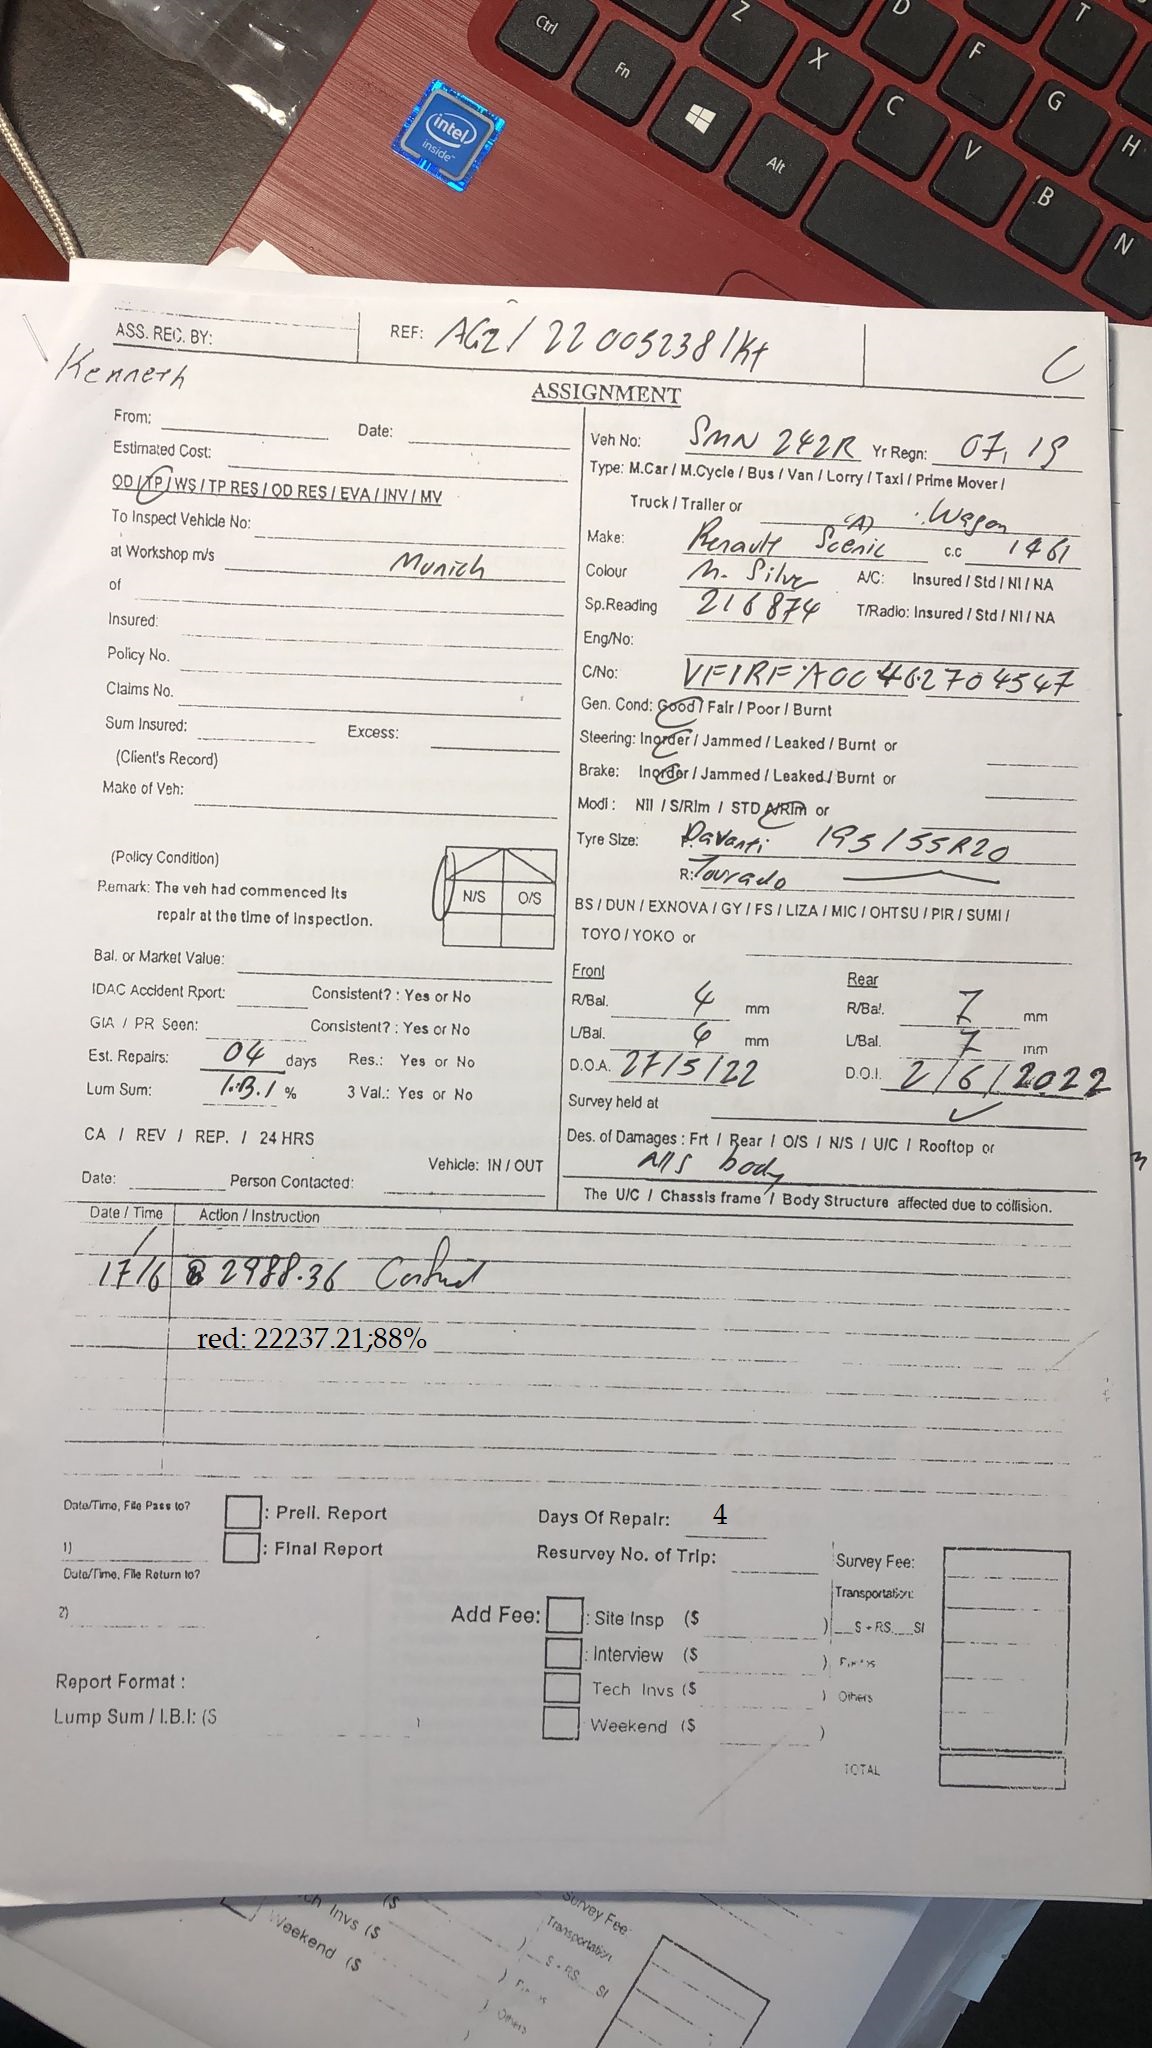 Ctrl
Fn
Alt
Z
X
C
V
B
N
D
F
G
H
T
intel
inside
ASS. REC. BY:
Kenneth
REF: AG2 / 22005238 / Kt
C
ASSIGNMENT
From: Date:
Estimated Cost:
OD / TP / WS / TP RES / OD RES / EVA / INV / MV
To Inspect Vehicle No:
at Workshop m/s Munich
of
Insured:
Policy No.
Claims No.
Sum Insured: Excess:
(Client's Record)
Make of Veh:
(Policy Condition)
Remark: The veh had commenced its
repair at the time of inspection.
N/S O/S
Bal. or Market Value:
IDAC Accident Rport: Consistent? : Yes or No
GIA / PR Seen: Consistent? : Yes or No
Est. Repairs: 04 days Res.: Yes or No
Lum Sum: 1.B.1 % 3 Val.: Yes or No
CA / REV / REP. / 24 HRS
Vehicle: IN / OUT
Date: Person Contacted:
Veh No: SMN 242R Yr Regn: 07, 19
Type: M.Car / M.Cycle / Bus / Van / Lorry / Taxi / Prime Mover /
Truck / Trailer or (A) Wagon
Make: Renault Scenic c.c 1461
Colour M. Silver A/C: Insured / Std / NI / NA
Sp.Reading 216874 T/Radio: Insured / Std / NI / NA
Eng/No:
C/No: VF1RFA00462704547
Gen. Cond: Good / Fair / Poor / Burnt
Steering: Inorder / Jammed / Leaked / Burnt or
Brake: Inorder / Jammed / Leaked / Burnt or
Modi: Nil / S/Rim / STD A/Rim or
Tyre Size: Davanti 195/55R20
R: Tourado
BS / DUN / EXNOVA / GY / FS / LIZA / MIC / OHTSU / PIR / SUMI /
TOYO / YOKO or
Front Rear
R/Bal. 4 mm R/Bal. 7 mm
L/Bal. mm L/Bal. 7 mm
D.O.A. 27/5/22 D.O.I. 2/6/2022
Survey held at
Des. of Damages : Frt / Rear / O/S / N/S / U/C / Rooftop or
N/S body
The U/C / Chassis frame / Body Structure affected due to collision.
Date / Time Action / Instruction
17/6 @ 2988.36
red: 22237.21;88%
Date/Time, File Pass to?
1)
Date/Time, File Return to?
2)
: Prell. Report
: Final Report
Days Of Repair: 4
Resurvey No. of Trip:
Add Fee: : Site Insp ($ )
: Interview ($ )
Tech Invs ($ )
Weekend ($ )
Survey Fee:
Transportation:
S + RS SI
Others
TOTAL
Report Format :
Lump Sum / I.B.I: ($ )
Invs ($
Weekend ($
Survey Fee:
Transportation
S + RS SI
Others